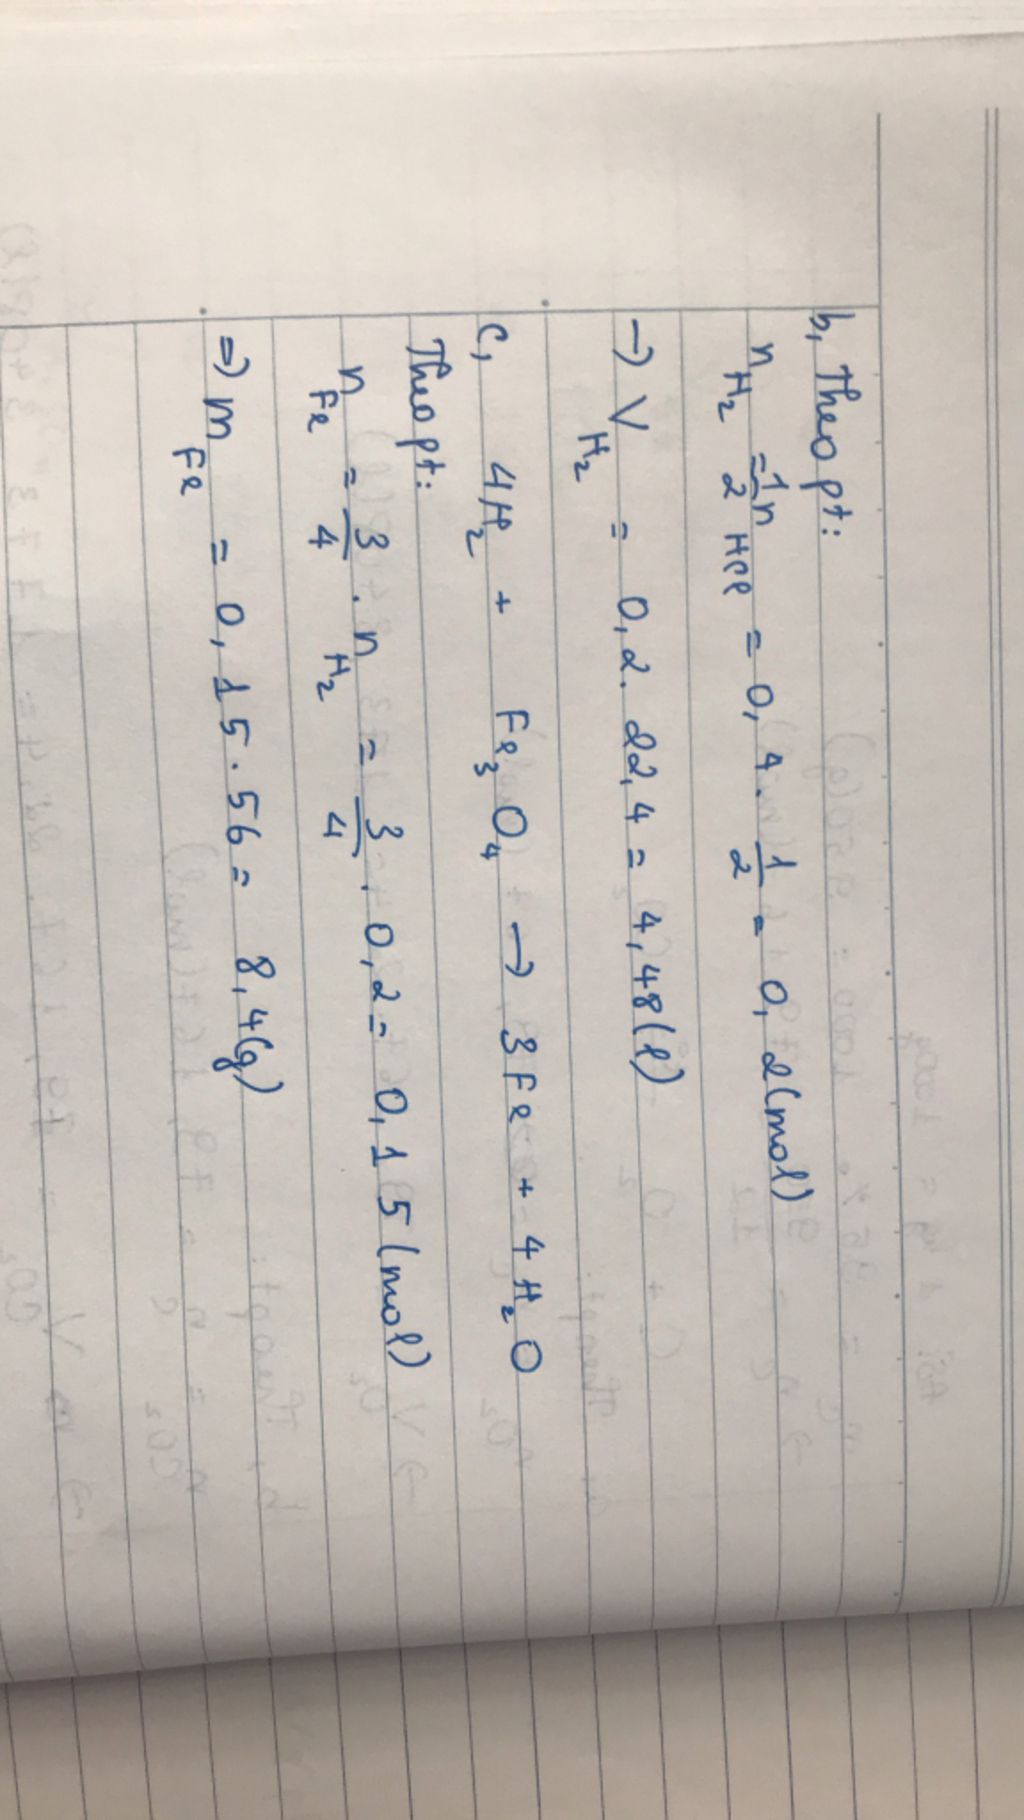 b, Theo pt:
n H₂ = 1/2 n HCl = 0,4 . 1/2 = 0,2 (mol)
→ V H₂ = 0,2 . 22,4 = 4,48 (l)
c, 4H₂ + Fe₃O₄ → 3Fe + 4H₂O
Theo pt:
n Fe = 3/4 . n H₂ = 3/4 . 0,2 = 0,15 (mol)
⇒ m Fe = 0,15 . 56 = 8,4 (g)